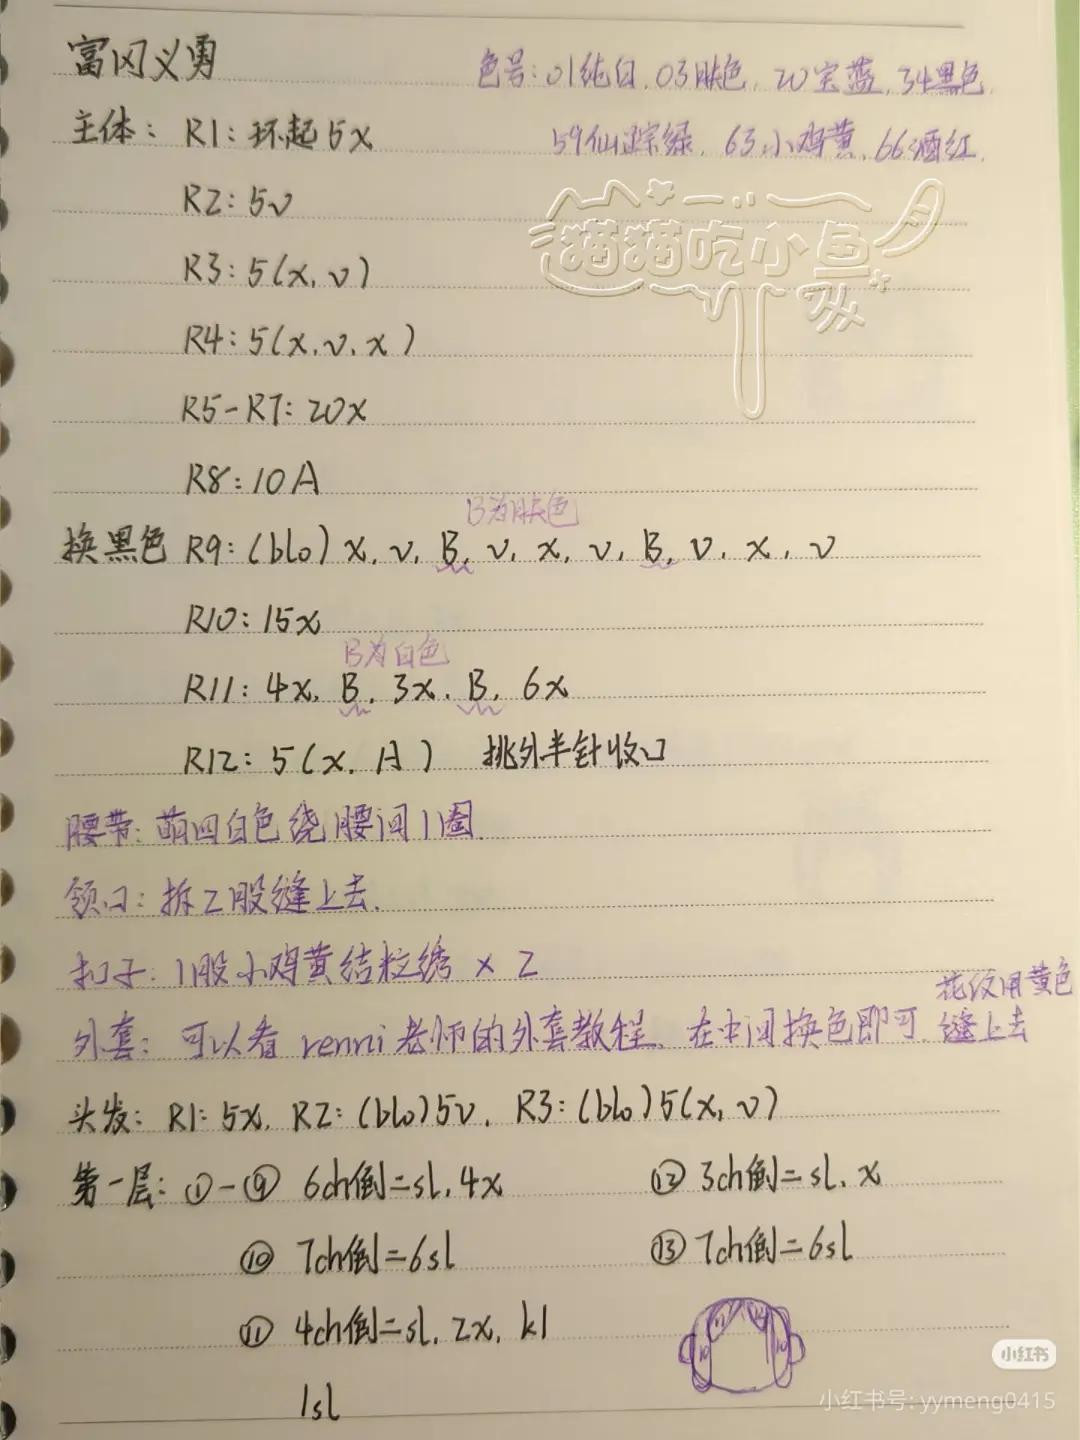 富冈义勇
色号:01纯白.03肤色.20宝蓝.34黑色.
59仙踪绿.63小鸡黄.66酒红.
主体: R1:环起5x
R2:5v
R3:5(x,v)
R4:5(x.v.x)
猫猫吃小鱼
R5-R7:20x
R8:10A
B为肤色
换黑色 R9:(blo)x,v,B,v,x,v,B,v,x,v
R10:15x
B为白色
R11:4x,B,3x.B,6x
R12:5(x,A) 挑外半针收口
腰带:萌四白色绕腰间1圈.
领口:拆2股缝上去.
扣子:1股小鸡黄结粒绣 x 2
花纹用黄色
外套:可以看renni老师的外套教程.在中间换色即可.缝上去
头发: R1:5x, R2:(blo)5v, R3:(blo)5(x,v)
第一层:①-⑨ 6ch倒=sl.4x ⑫ 3ch倒=sl.x
⑩ 7ch倒=6sl ⑬ 7ch倒=6sl
⑪ 4ch倒=sl.2x,k1
11
10 10
1sl
小红书
小红书号:yymeng0415